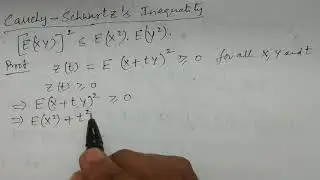 Cauchy-Schwartz's Inequality
[E(XY)]² ≤ E(X²). E(Y²).
Proof
z(t) = E (X+tY)² ≥ 0 for all X, Y and t
z(t) ≥ 0
⇒ E(X+tY)² ≥ 0
⇒ E(X²) + t²